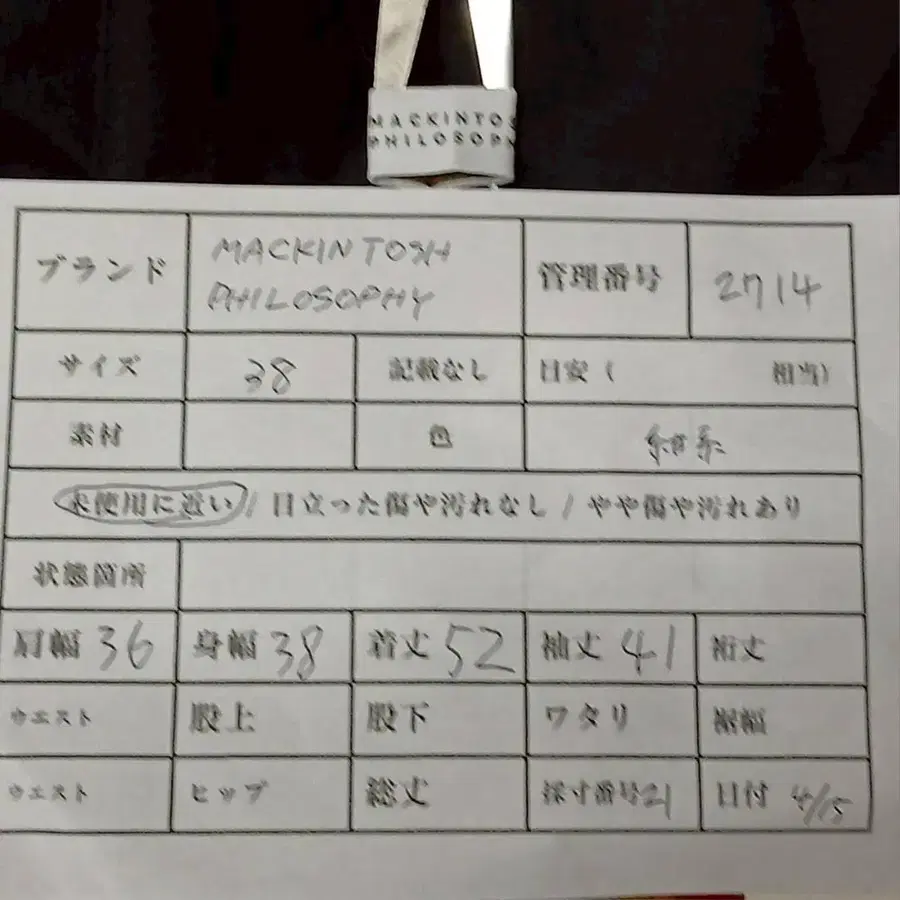 MACKINTOS
PHILOSOPH
ブランド MACKINTOSH PHILOSOPHY 管理番号 2714
サイズ 38 記載なし 目安 ( 相当)
素材 色 紺系
未使用に近い / 目立った傷や汚れなし / やや傷や汚れあり
状態箇所
肩幅 36 身幅 38 着丈 52 袖丈 41 裄丈
ウエスト 股上 股下 ワタリ 裾幅
ウエスト ヒップ 総丈 採寸番号21 日付 4/15